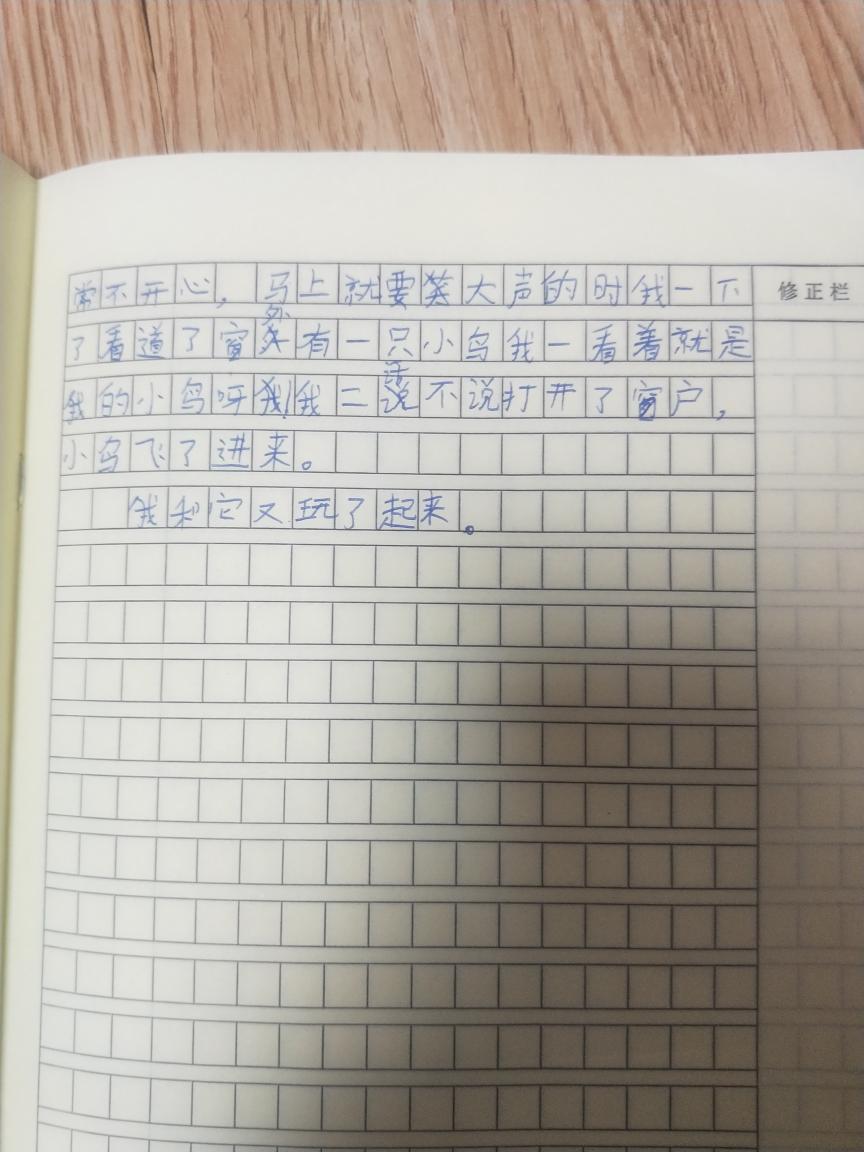 常不开心，马上就要笑大声的时我一下 修正栏
了看道了窗外有一只小鸟我一看着就是
我的小鸟呀！我二话不说打开了窗户，
小鸟飞了进来。
我和它又玩了起来。